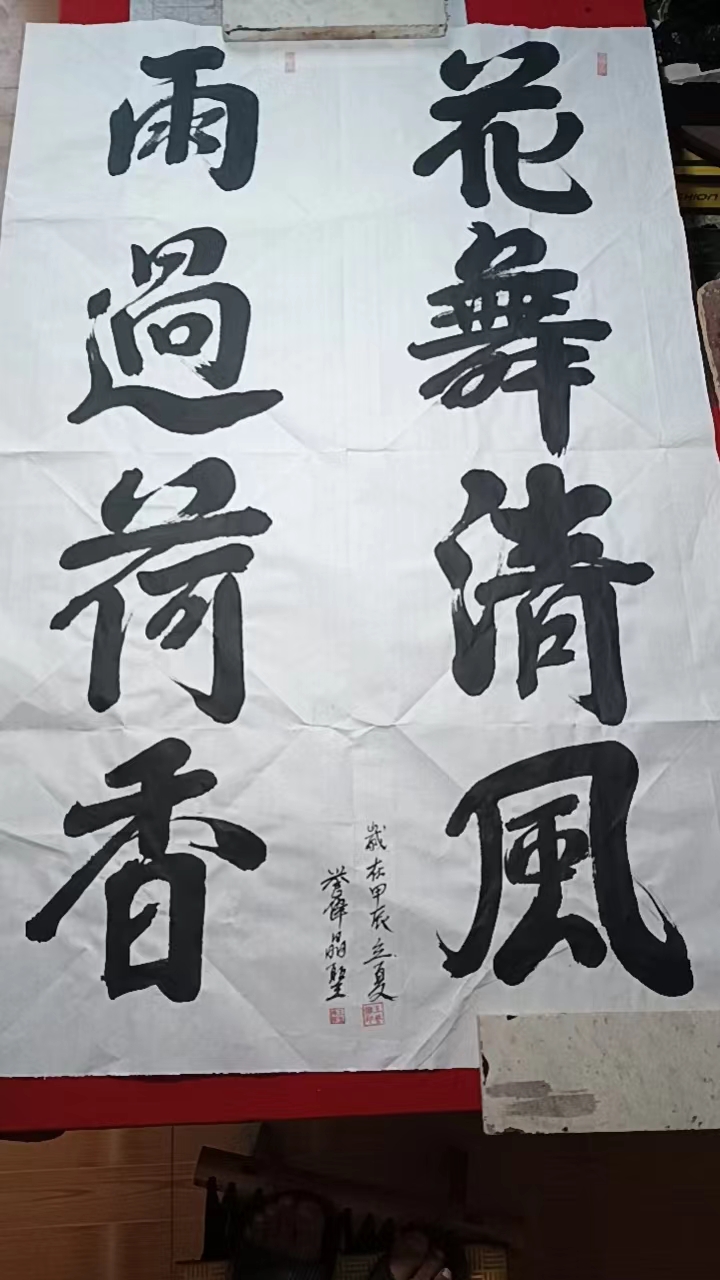 花舞清風
雨過荷香
歲在甲辰立夏